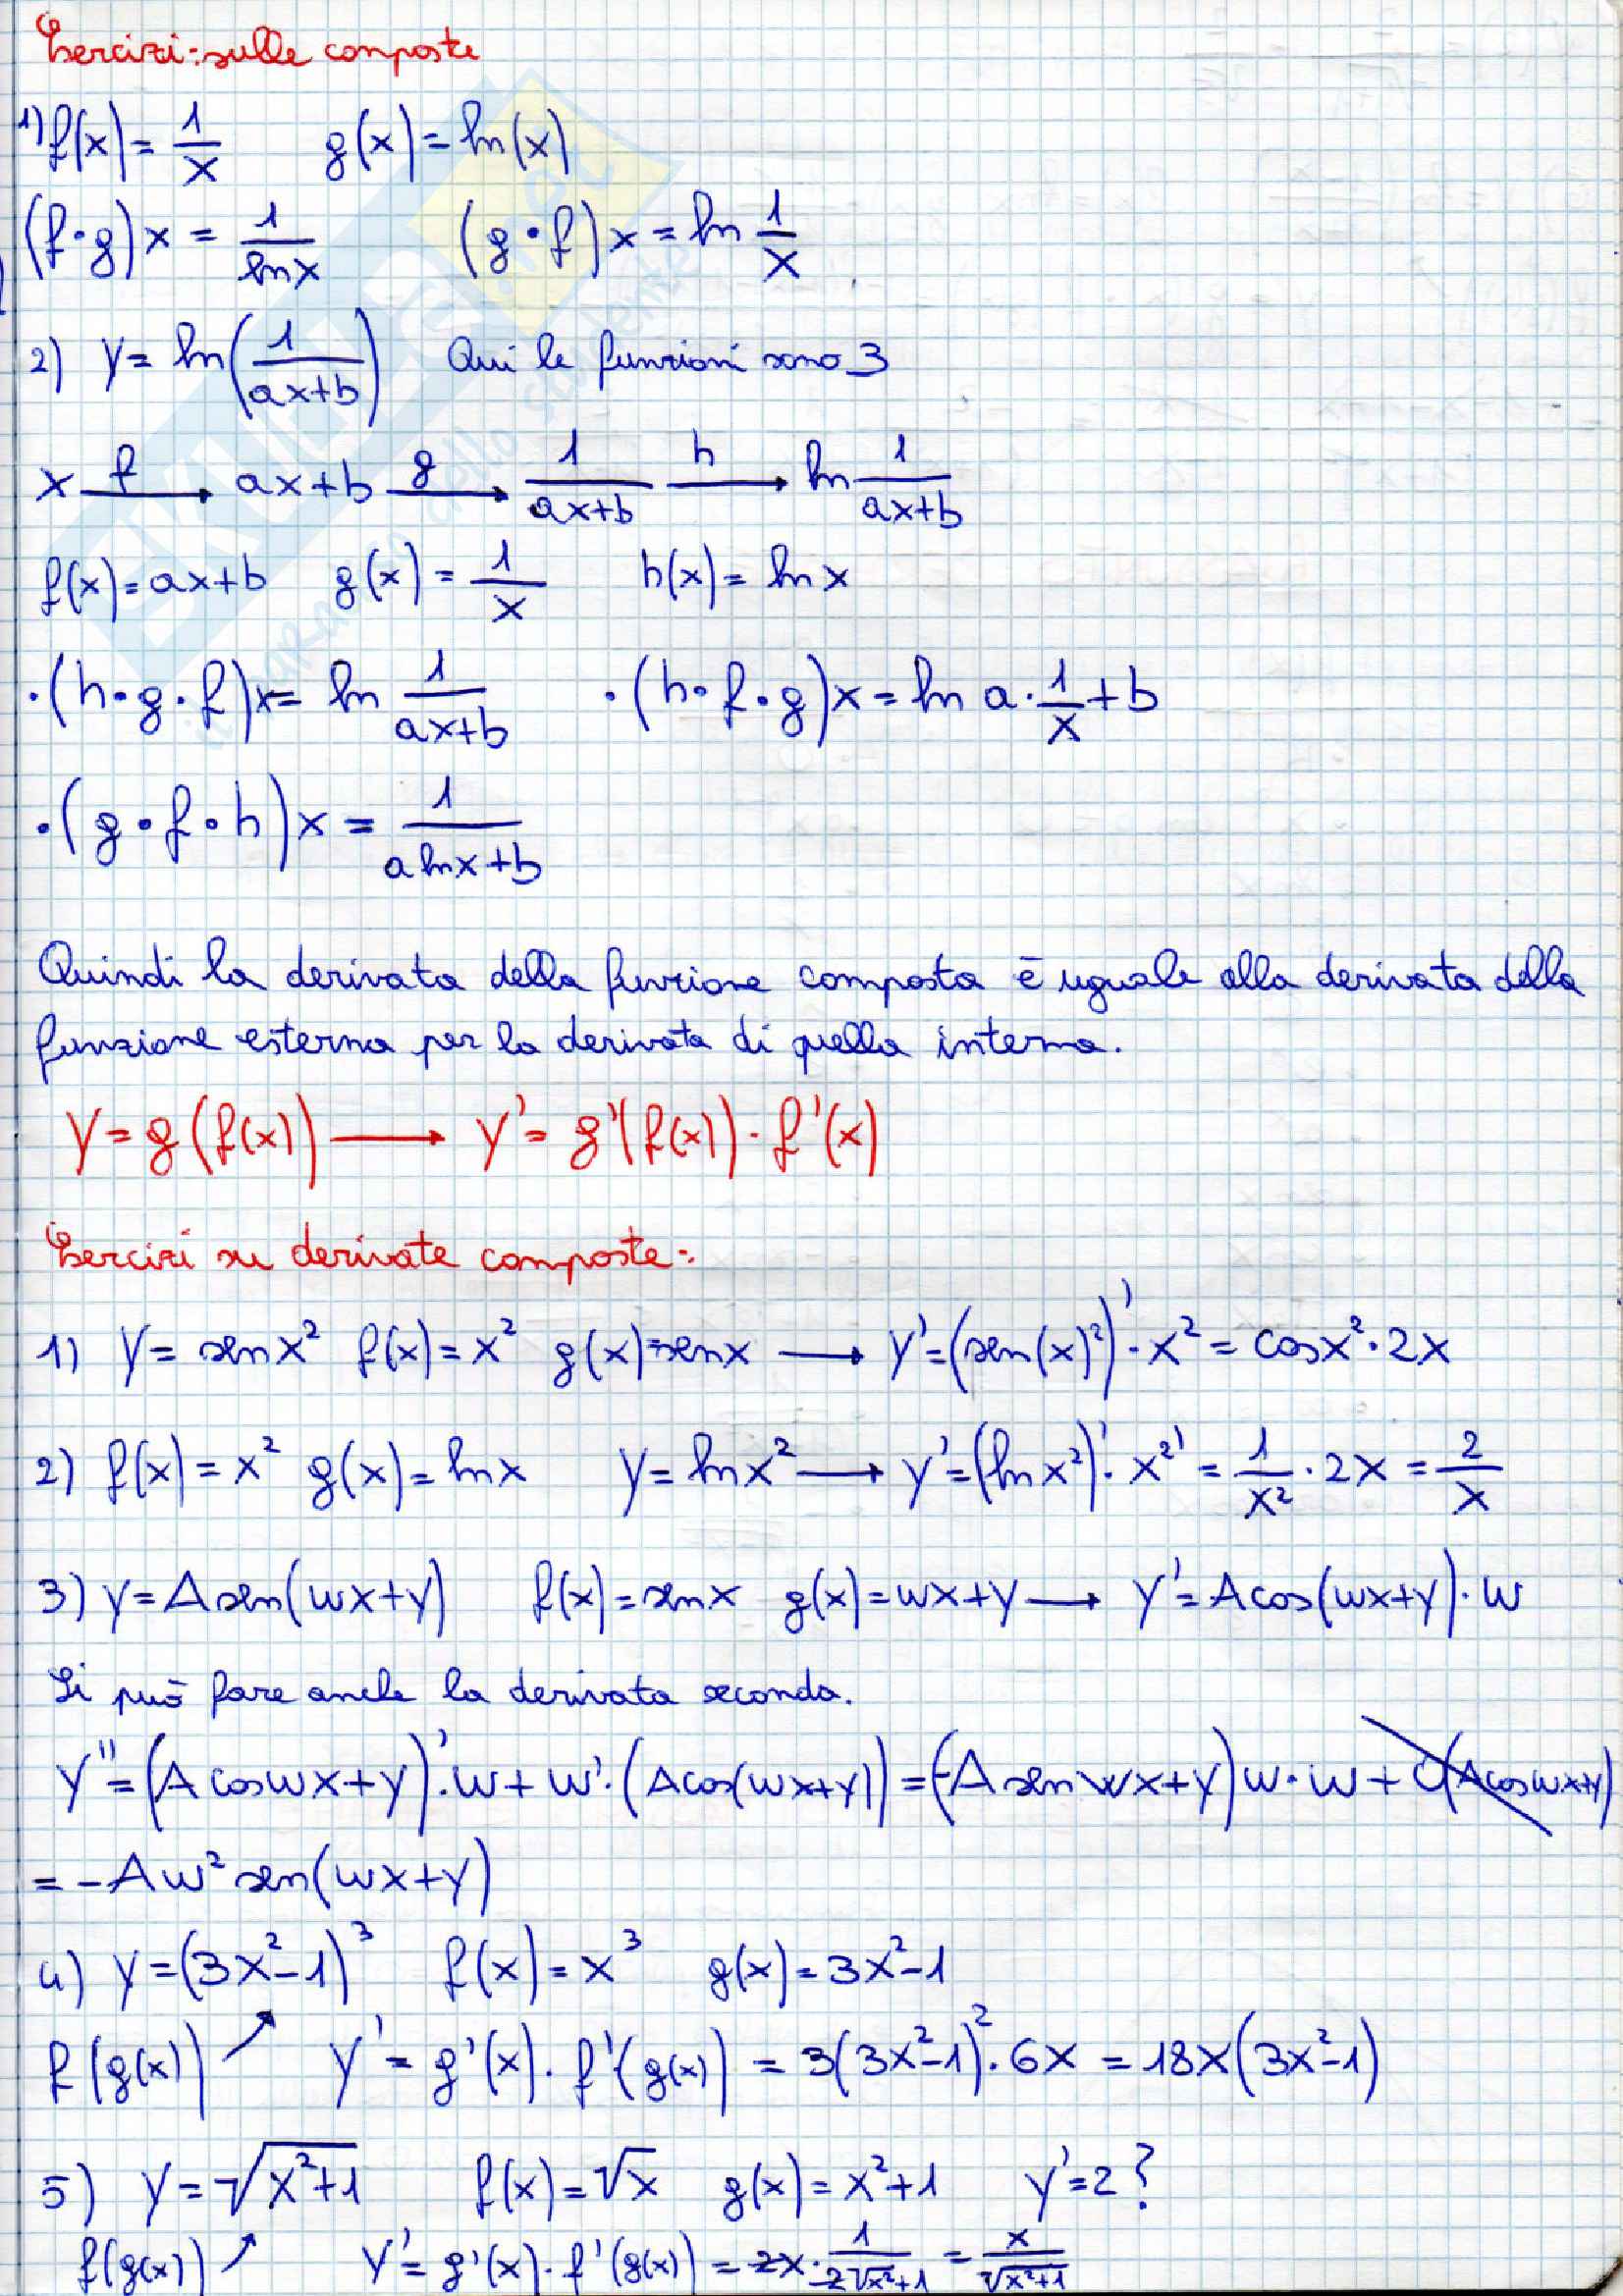 Esercizi: sulle composte
1) f(x) = 1/x g(x) = ln(x)
(f·g)x = 1/lnx (g·f)x = ln 1/x
2) y = ln(1/(ax+b)) Qui le funzioni sono 3
x —f→ ax+b —g→ 1/(ax+b) —h→ ln 1/(ax+b)
f(x) = ax+b g(x) = 1/x h(x) = ln x
·(h·g·f)x = ln 1/(ax+b) ·(h·f·g)x = ln a·1/x+b
·(g·f·h)x = 1/(a lnx+b)
Quindi la derivata della funzione composta è uguale alla derivata della
funzione esterna per la derivata di quella interna.
y = g(f(x)) ⟶ y' = g'(f(x))·f'(x)
Esercizi su derivate composte:
1) y = senx² f(x) = x² g(x) = senx ⟶ y' = (sen(x)²)'·x² = cosx²·2x
2) f(x) = x² g(x) = lnx y = lnx² ⟶ y' = (lnx²)'·x²' = 1/x²·2x = 2/x
3) y = A sen(wx+y) f(x) = senx g(x) = wx+y ⟶ y' = A cos(wx+y)·w
Si può fare anche la derivata seconda.
y'' = (A coswx+y)'·w + w'·(A cos(wx+y)) = (-A sen wx+y)w·w + 0(A cos wx+y)
= -Aw² sen(wx+y)
4) y = (3x²-1)³ f(x) = x³ g(x) = 3x²-1
f(g(x)) ↗ y' = g'(x)·f'(g(x)) = 3(3x²-1)²·6x = 18x(3x²-1)
5) y = √(x²+1) f(x) = √x g(x) = x²+1 y' = 2?
f(g(x)) ↗ y' = g'(x)·f'(g(x)) = 2x·1/(2√(x²+1)) = x/√(x²+1)
SKUOLA.net